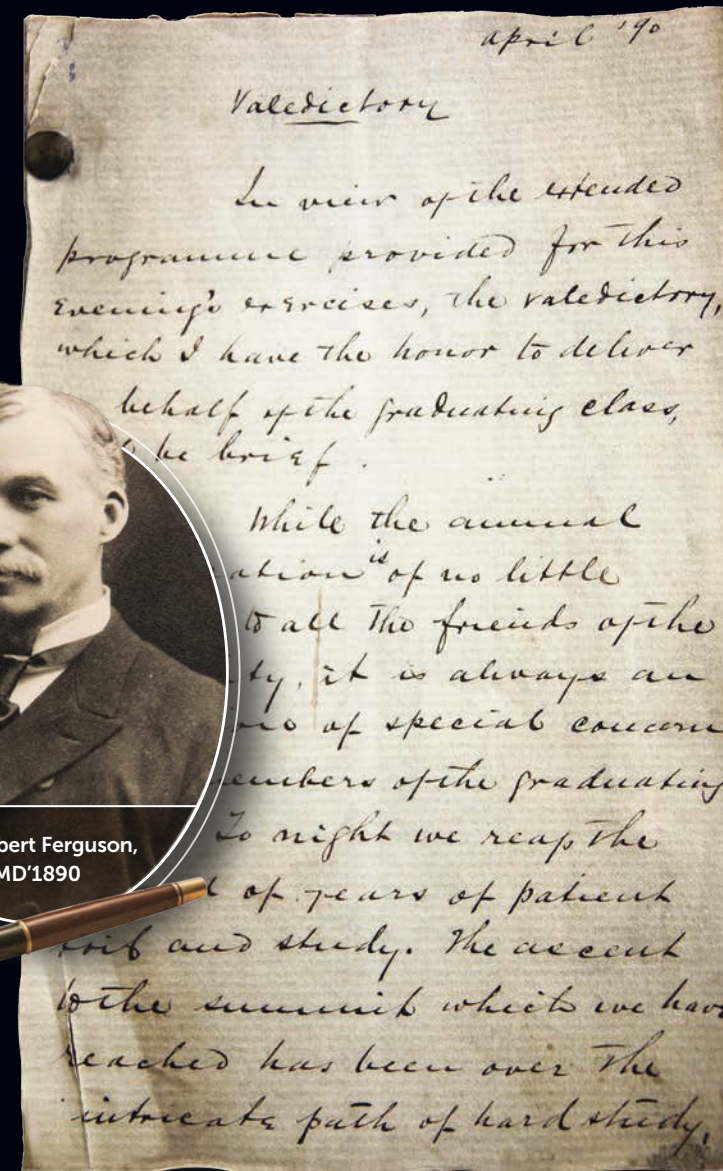 April '90
Valedictory
In view of the extended
programme provided for this
evening's exercises, the valedictory,
which I have the honor to deliver
behalf of the graduating class,
be brief.
While the annual
ation is of no little
to all the friends of the
ty, it is always an
of special concern
members of the graduating
To night we reap the
of years of patient
toil and study. The ascent
to the summit which we have
reached has been over the
intricate path of hard study,
bert Ferguson,
MD'1890